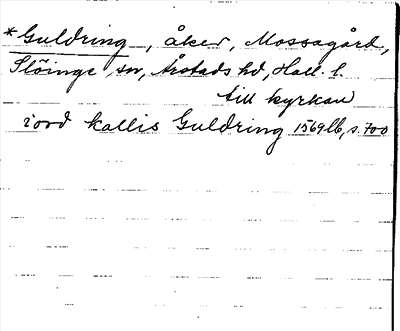 *Guldring, åker, Mossagård,
Slöinge sn, Årstads hd, Hall. l.
till kyrkan
iord kallis Guldring 1569 lb, s. 700